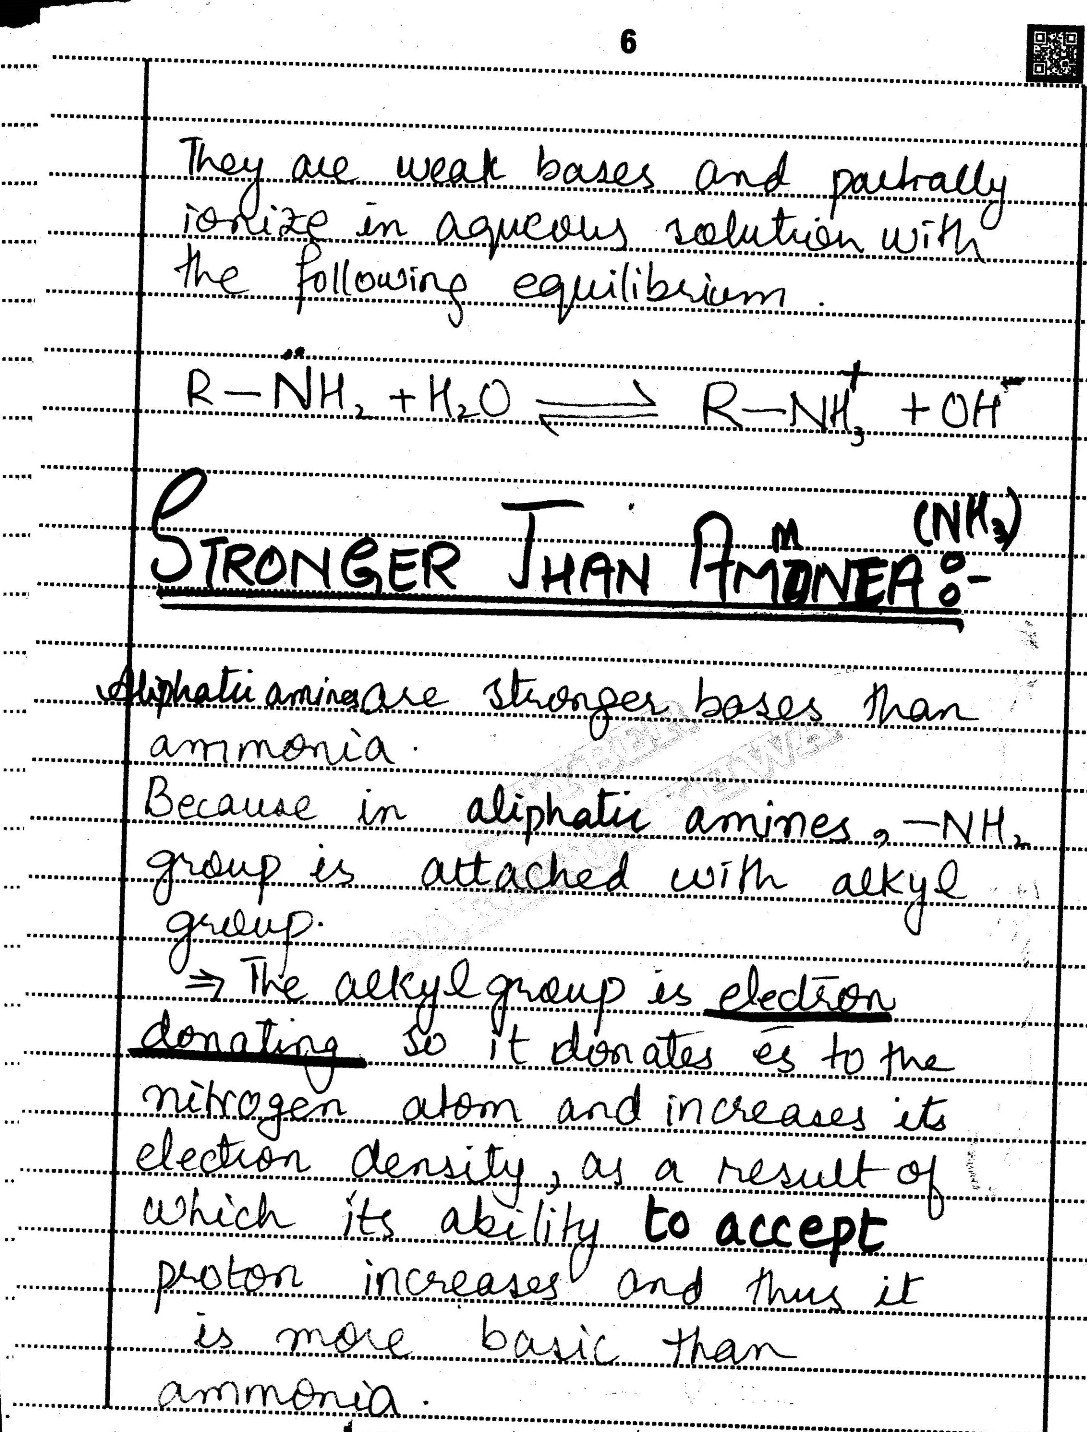 6
They are weak bases and partially
ionize in aqueous solution with
the following equilibrium.
R-N̈H₂ + H₂O ⇌ R-NH₃⁺ + OH⁻
STRONGER THAN AMMONEA (NH₃) :-
Aliphatic amines are stronger bases than
ammonia.
Because in aliphatic amines, -NH₂
group is attached with alkyl
group.
⇒ The alkyl group is electron
donating so it donates ēs to the
nitrogen atom and increases its
electron density, as a result of
which its ability to accept
proton increases and thus it
is more basic than
ammonia.